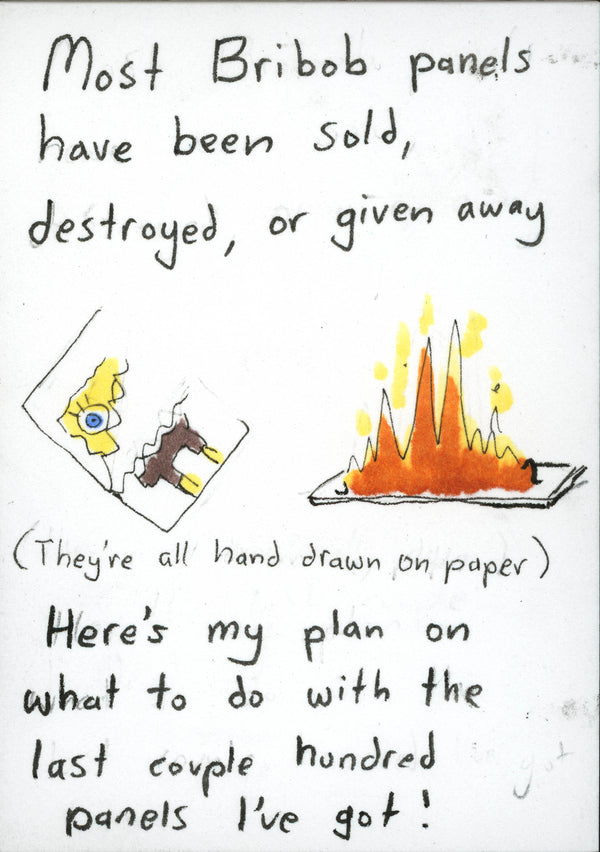 Most Bribob panels
have been sold,
destroyed, or given away
(They're all hand drawn on paper)
Here's my plan on
what to do with the
last couple hundred
panels I've got!
got